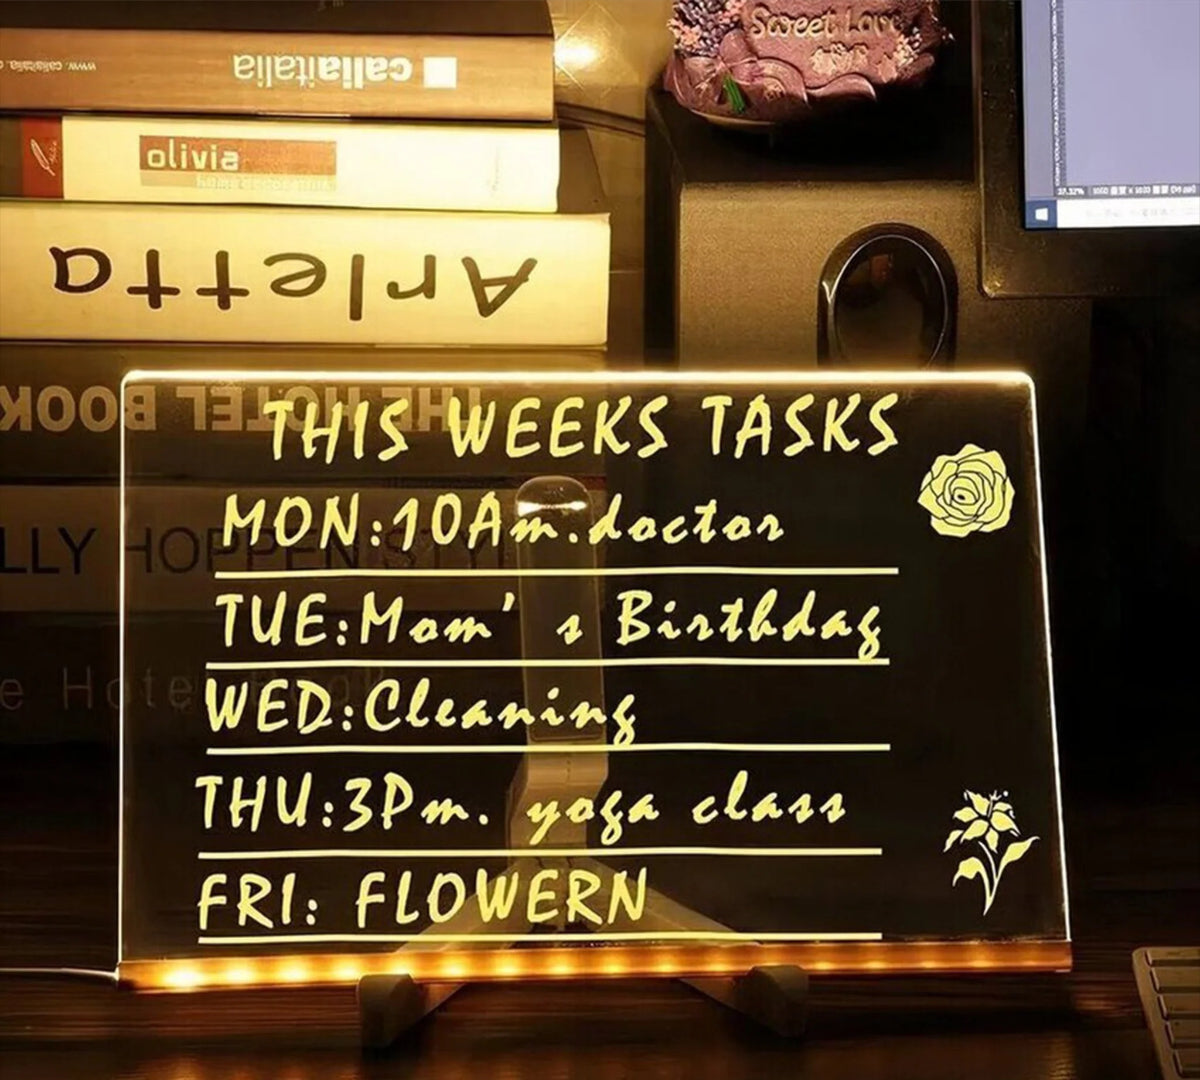 www.caliaitalia.c
caliaitalia
olivia
Arletta
THE HOTEL BOOK
LLY HOPPEN STYL
e Hotel Book
Sweet Love
THIS WEEKS TASKS
MON:10Am.doctor
TUE:Mom's Birthday
WED:Cleaning
THU:3Pm. yoga class
FRI: FLOWERN